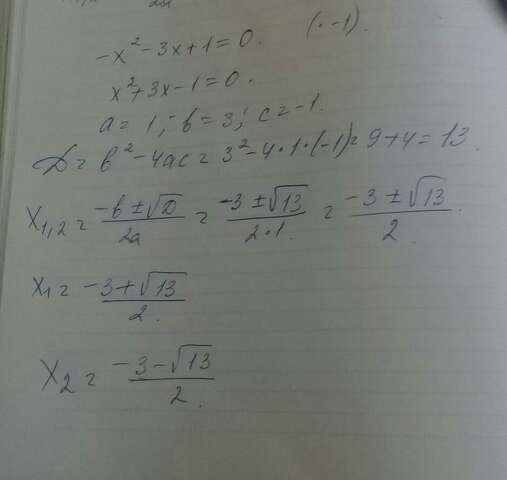 -x² - 3x + 1 = 0. (· -1).
x² + 3x - 1 = 0.
a = 1; b = 3; c = -1.
D = b² - 4ac = 3² - 4·1·(-1) = 9 + 4 = 13.
X₁,₂ = (-b ± √D)/(2a) = (-3 ± √13)/(2·1) = (-3 ± √13)/2.
X₁ = (-3 + √13)/2.
X₂ = (-3 - √13)/2.